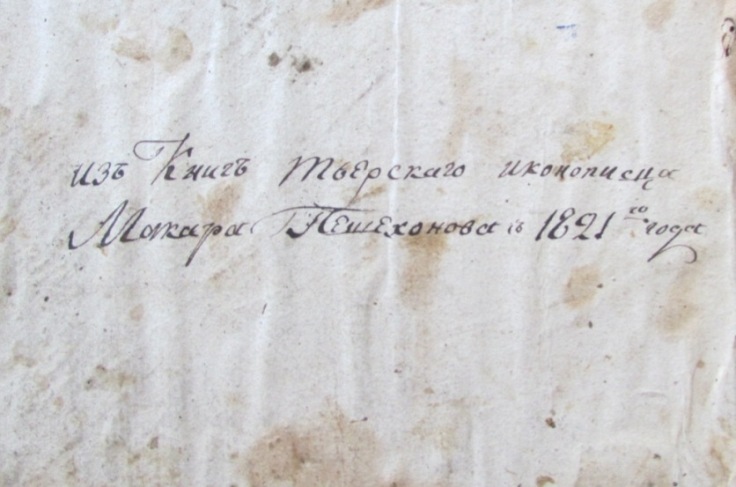 изъ Книгъ тверскаго иконописца
Макара Пешехонова съ 1821го года